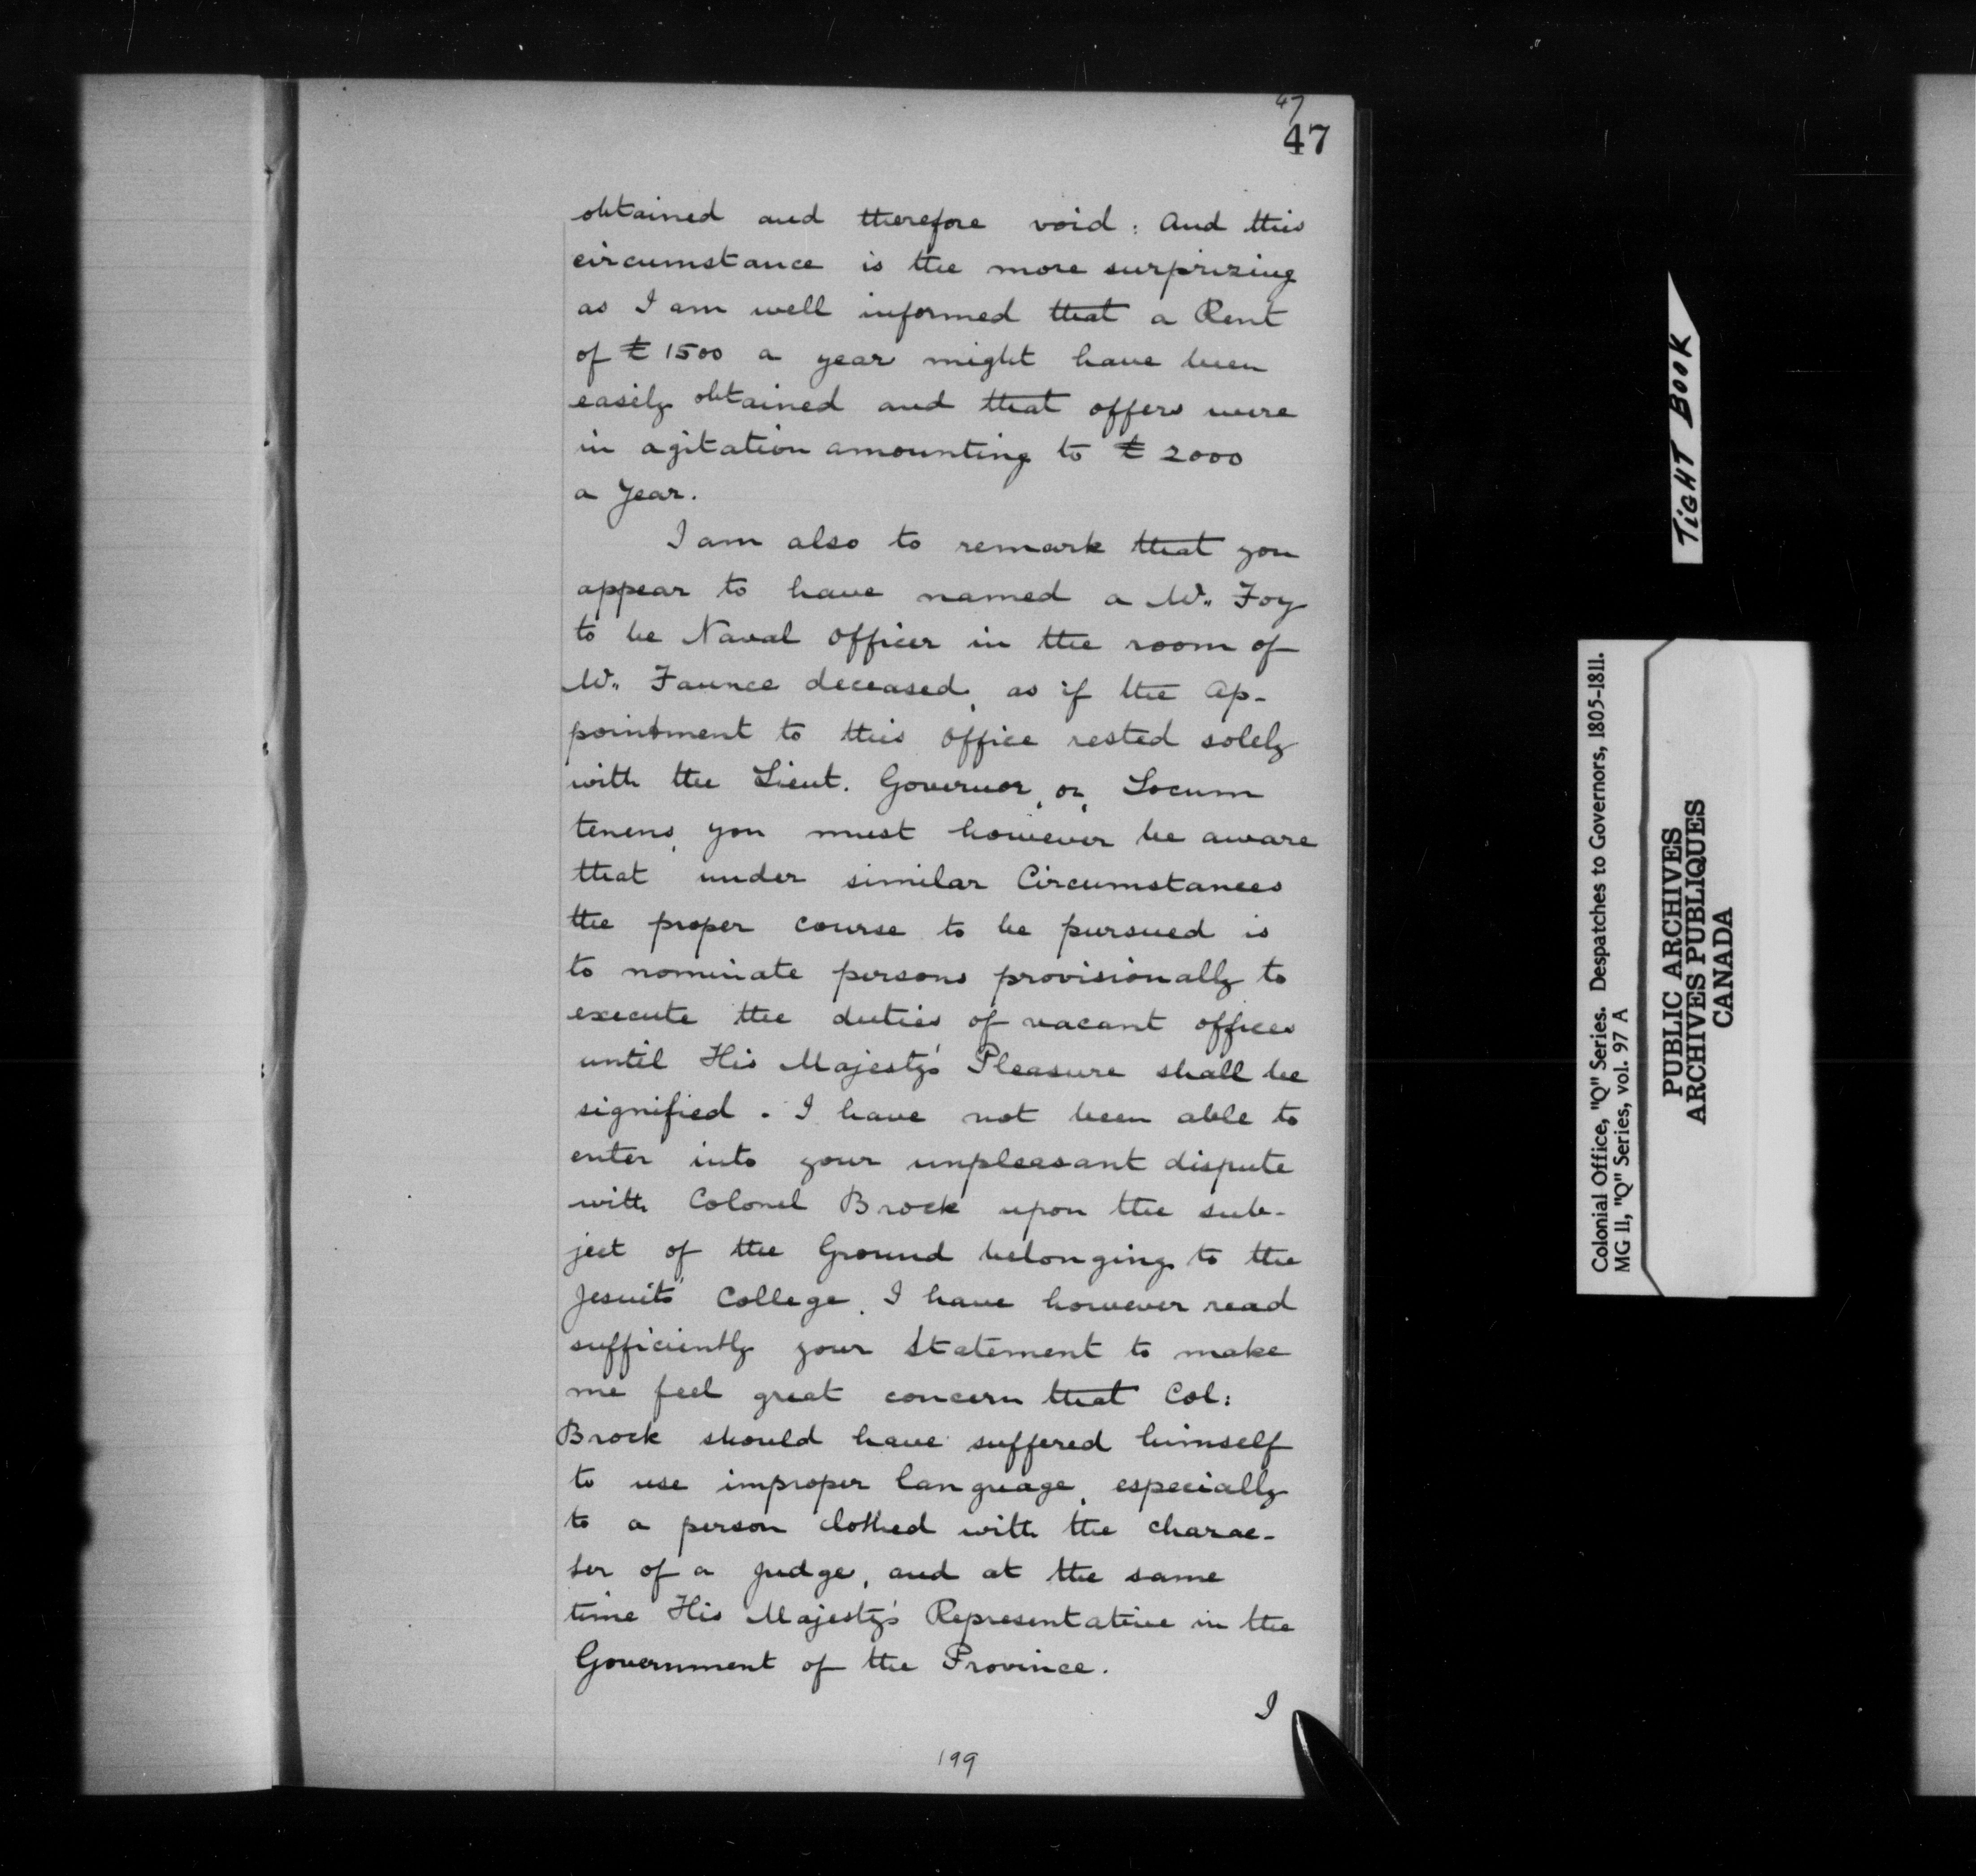 47
47
obtained and therefore void: And this
circumstance is the more surprizing
as I am well informed that a Rent
of £1500 a year might have been
easily obtained and that offers were
in agitation amounting to £2000
a Year.
I am also to remark that you
appear to have named a Mr. Foy
to be Naval Officer in the room of
Mr. Faunce deceased, as if the Ap-
pointment to this Office rested solely
with the Lieut. Governor, or, Locum
tenens, you must however be aware
that under similar Circumstances
the proper course to be pursued is
to nominate persons provisionally to
execute the duties of vacant offices
until His Majesty's Pleasure shall be
signified. I have not been able to
enter into your unpleasant dispute
with Colonel Brock upon the sub-
ject of the Ground belonging to the
Jesuits' College. I have however read
sufficiently your Statement to make
me feel great concern that Col:
Brock should have suffered himself
to use improper language, especially
to a person clothed with the charac-
ter of a Judge, and at the same
time His Majesty's Representative in the
Government of the Province.
I
199
TIGHT BOOK
Colonial Office, "Q" Series. Despatches to Governors, 1805-1811.
MG 11, "Q" Series, vol. 97 A
PUBLIC ARCHIVES
ARCHIVES PUBLIQUES
CANADA